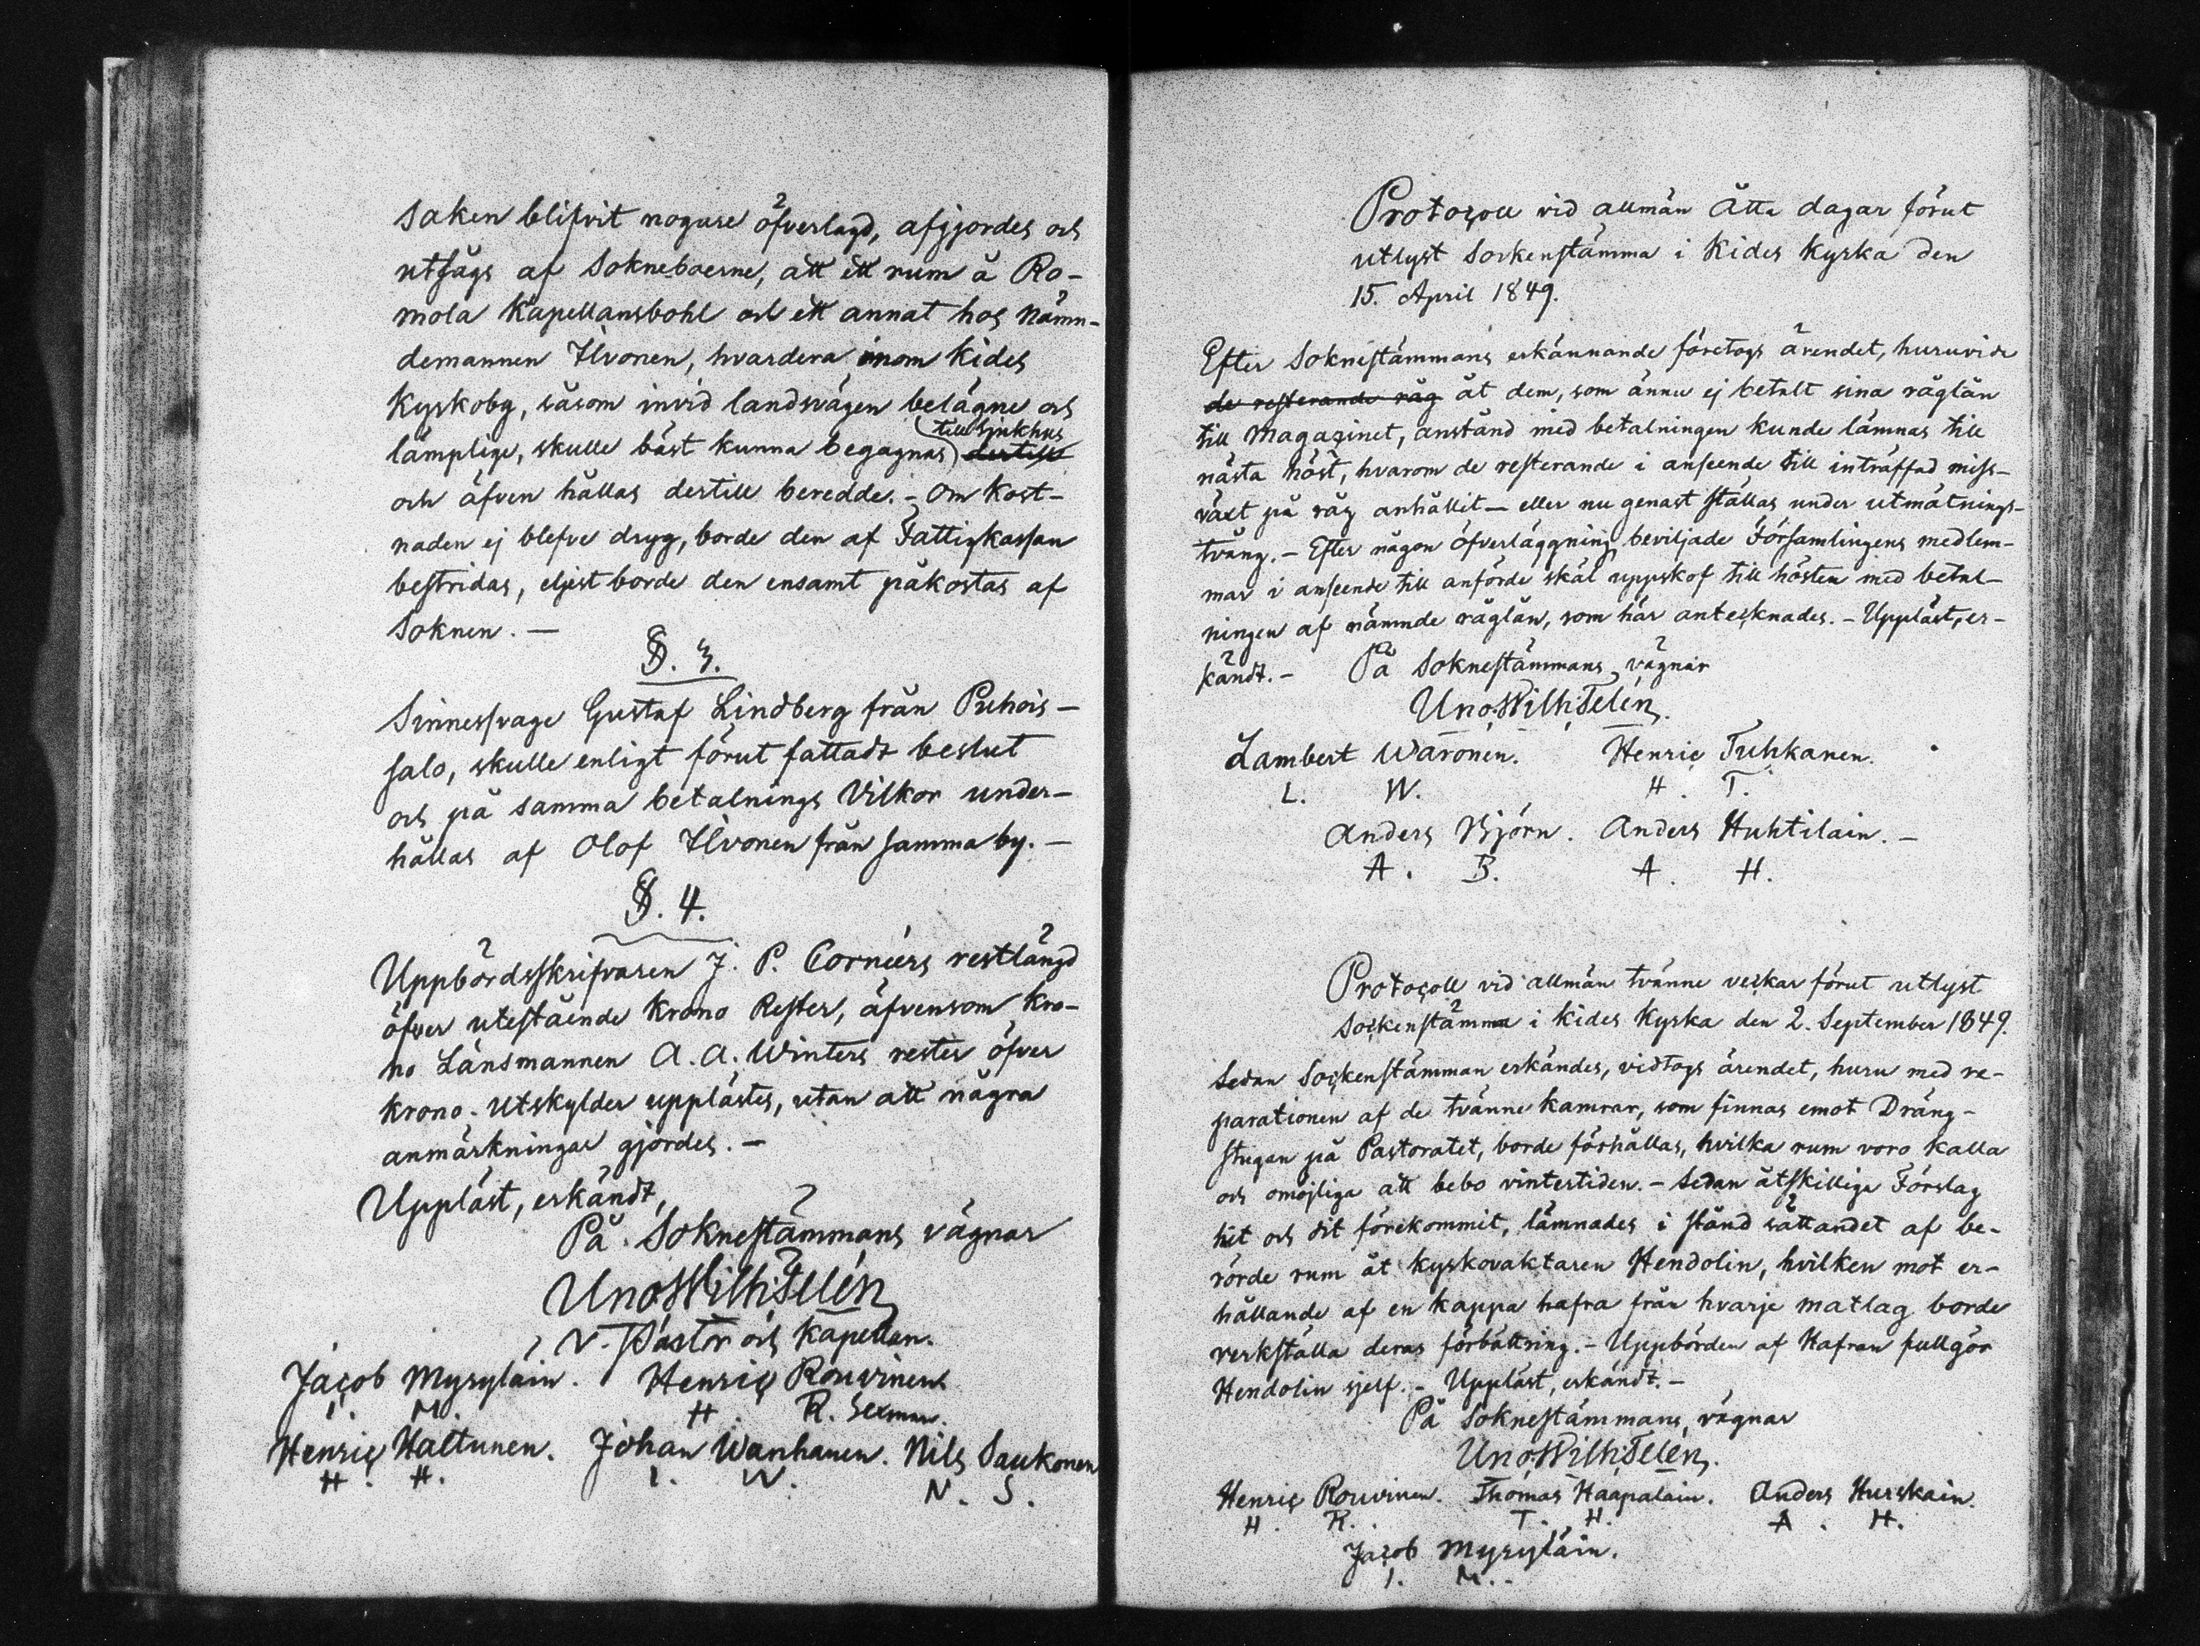 saken blifvit nogare öfverlagd, afgjordes och
utsågs af Sokneboerne, att ett rum å Ro-
mola Kapellansbohl och ett annat hos Nämn-
demannen Ilvonen, hvardera inom Kides
Kyrkoby, såsom invid landsvägen belägne och
till Sjukhus
lämplige, skulle bäst kunna begagnas dertill
och äfven hållas dertill beredde. - Om kost-
naden ej blefve dryg, borde den af Fattigkassan
bestridas, eljest borde den ensamt påkostas af
Soknen. -
§. 3.
Sinnessvage Gustaf Lindberg från Puhois-
salo, skulle enligt förut fattadt beslut
och på samma betalnings Vilkor under-
hållas af Olof Ilvonen från samma by. -
§. 4.
Uppbördsskrifvaren J. P. Corniérs restlängd
öfver utestående Krono Rester, äfvensom Kro-
no Länsmannen A. A. Winters rester öfver
Krono-Utskylder upplästes, utan att några
anmärkningar gjordes. -
Uppläst, erkändt,
På Soknestämmans vägnar
Uno Wilh: Telén
V. Pastor och Kapellan.
Jacob Myryläin. Henric Rouvinen
I. M. H. R. Sexman.
Henric Haltunen. Johan Wanhanen. Nils Saukonen
H. H. I. W. N. S.
Protocoll vid allmän Åtta dagar förut
utlyst Sockenstämma i Kides Kyrka den
15. April 1849.
Efter Soknestämmans erkännande företogs ärendet, huruvida
de resterande råg åt dem, som ännu ej betalt sina råglån
till Magazinet, anstånd med betalningen kunde lämnas till
nästa höst, hvarom de resterande i anseende till inträffad miss-
växt på råg anhållit - eller nu genast ställas under utmätnings-
tvång. - Efter någon öfverläggning beviljade Församlingens medlem-
mar i anseende till anförde skäl uppskof till hösten med betal-
ningen af nämnde råglån, som här antecknades. - Uppläst, er-
kändt. - På Soknestämmans vägnar
Uno Wilh: Telén.
Lambert Waronen. Henric Tuhkanen.
L. W. H. T.
Anders Björn. Anders Huhtilain. -
A. B. A. H.
Protocoll vid allmän tvänne veckor förut utlyst
Sockenstämma i Kides Kyrka den 2. September 1849.
Sedan Sockenstämman erkändes, vidtogs ärendet, huru med re-
parationen af de tvänne kamrar, som finnas emot Dräng-
stugan på Pastoratet, borde förhållas, hvilka rum voro kalla
och omöjliga att bebo vintertiden. - Sedan åtskillige Förslag
hit och dit förekommit, lämnades i stånd sättandet af be-
rörde rum åt Kyrkovaktaren Hendolin, hvilken mot er-
hållande af en kappa hafra från hvarje matlag borde
verkställa deras förbättring. - Uppbörden af Hafran fullgör
Hendolin sjelf. - Uppläst, erkändt. -
På Soknestämmans vägnar
Uno Wilh: Telén.
Henric Rouvinen. Thomas Haapalain. Anders Hurskain.
H. R. T. H. A. H.
Jacob Myryläin.
I. M. -